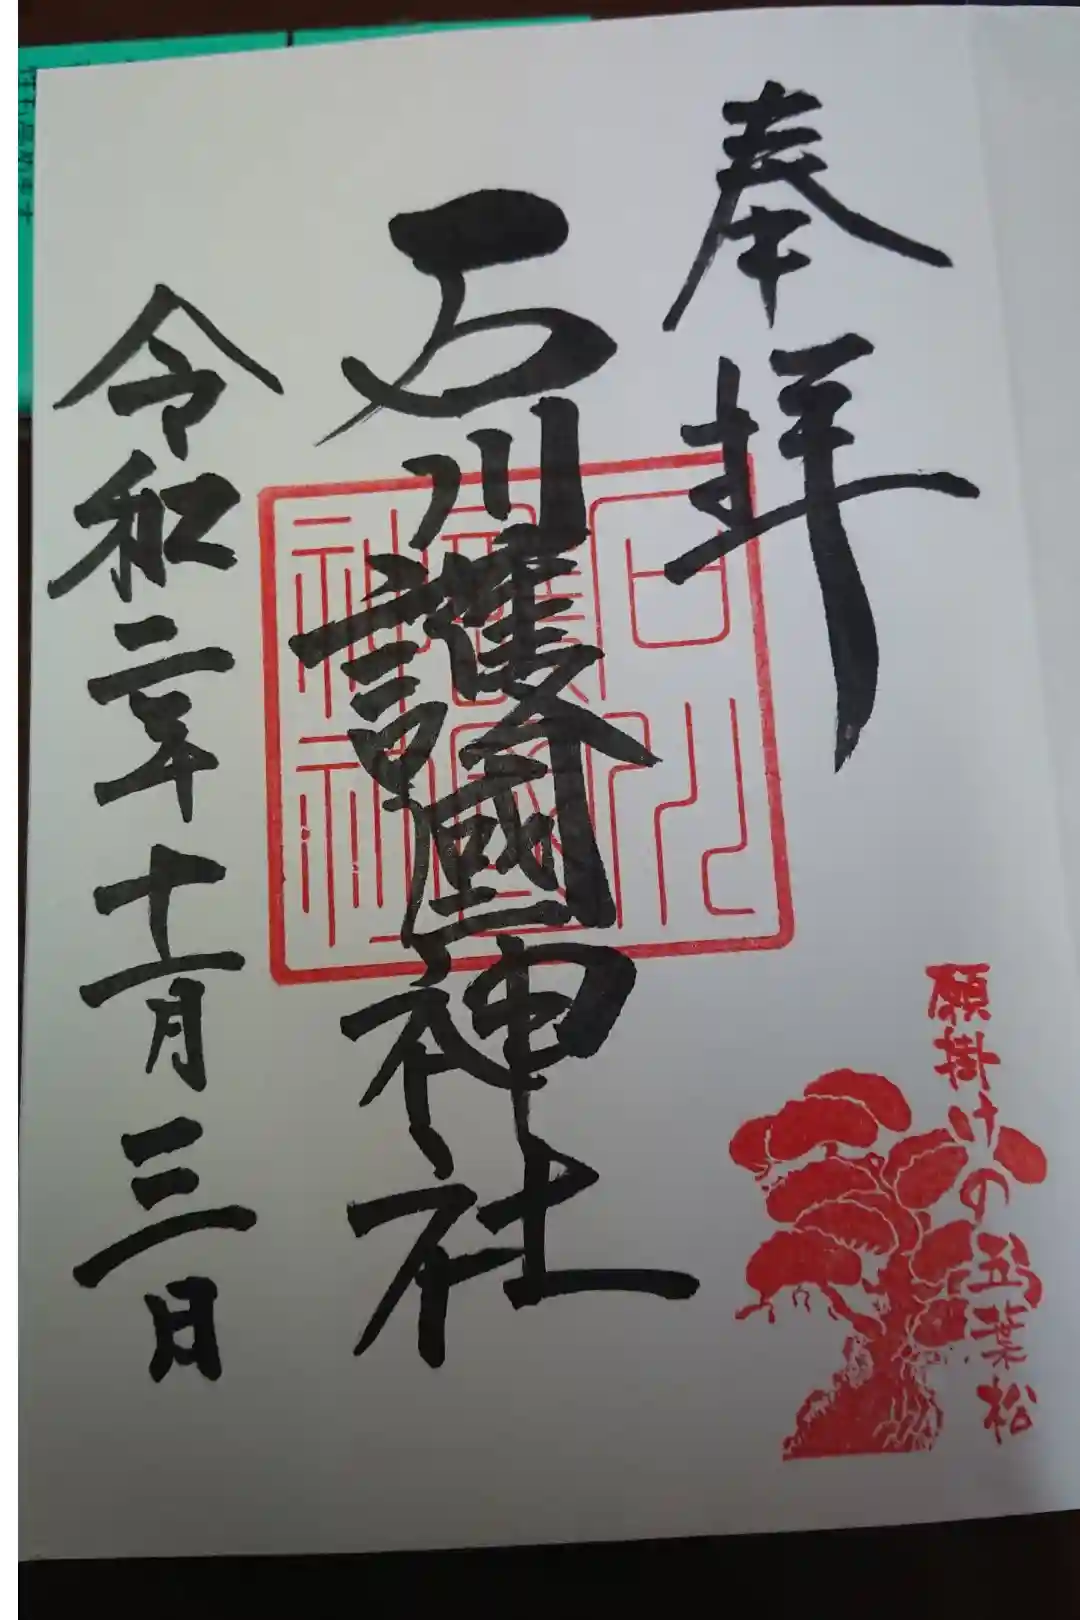 奉拝
石川護國神社
令和二年十一月三日
石川護國神社
願掛けの五葉松